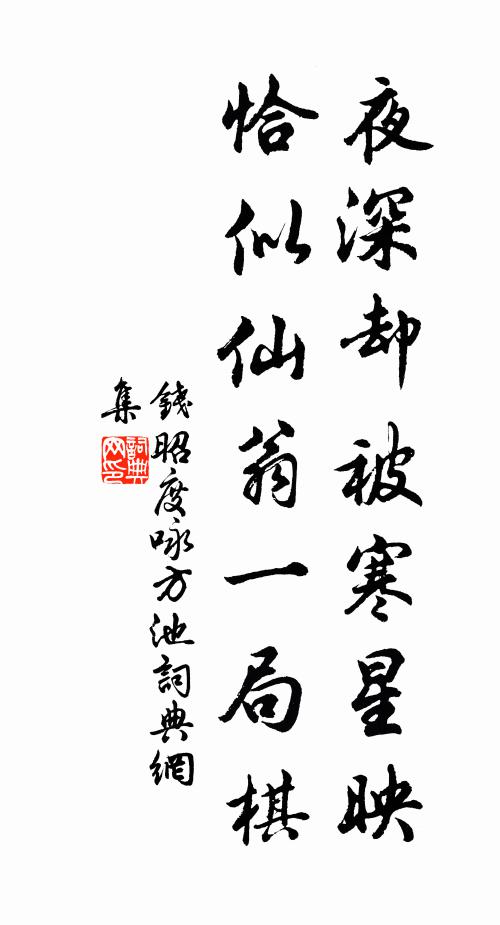 夜深却被寒星映
恰似仙翁一局棋
錢昭度咏方池詞典網
集
詞典
网印